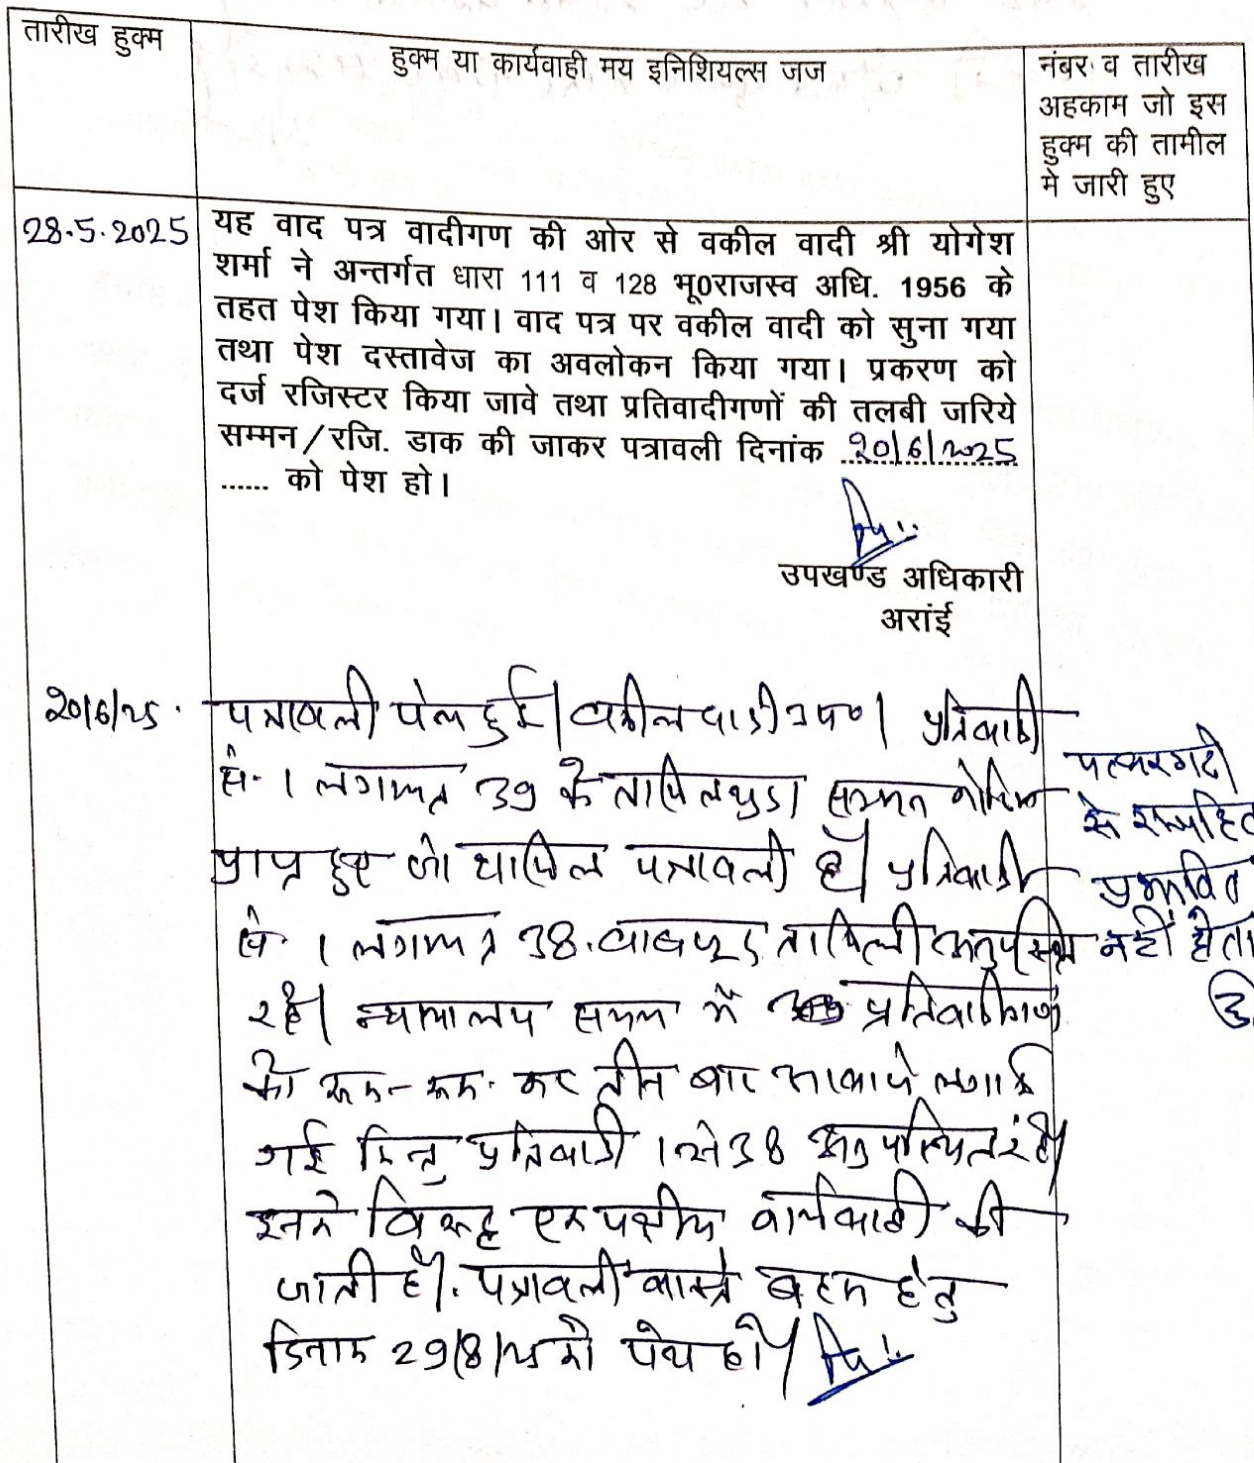 तारीख हुक्म
हुक्म या कार्यवाही मय इनिशियल्स जज
नंबर व तारीख
अहकाम जो इस
हुक्म की तामील
मे जारी हुए
28.5.2025
यह वाद पत्र वादीगण की ओर से वकील वादी श्री योगेश
शर्मा ने अन्तर्गत धारा 111 व 128 भू0राजस्व अधि. 1956 के
तहत पेश किया गया। वाद पत्र पर वकील वादी को सुना गया
तथा पेश दस्तावेज का अवलोकन किया गया। प्रकरण को
दर्ज रजिस्टर किया जावे तथा प्रतिवादीगणों की तलबी जरिये
सम्मन/रजि. डाक की जाकर पत्रावली दिनांक 20/6/2025
...... को पेश हो।
उपखण्ड अधिकारी
अरांई
20/6/25.
पत्रावली पेश हुई। वकील वादी उप०। प्रतिवादी
सं. 1 लगायत 39 के तामिलशुदा सम्मन नोटिस
प्राप्त हुए जो शामिल पत्रावली है। प्रतिवादी
सं. 1 लगायत 38. बावजूद तामिली अनुपस्थित
रहे। न्यायालय समय में प्रतिवादीगणों
को रूक-रूक. कर तीन बार आवाजे लगाई
गई किन्तु प्रतिवादी 1 से 38 अनुपस्थित रहे।
इनके विरूद्ध एकपक्षीय कार्यवाही की
जाती है। पत्रावली वास्ते बहस हेतु
दिनांक 29/8/25 को पेश हो।
पत्थरगढी
से
प्रभावित
नहीं होता